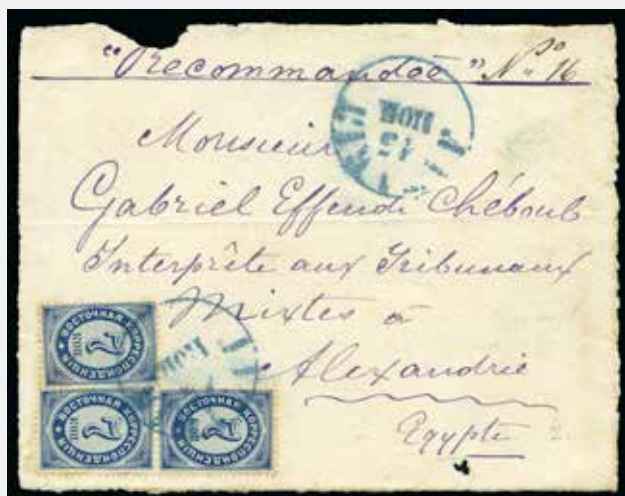 "Recommandée" No 16
Monsieur
Gabriel Effendi Chéboub
Interprête aux Tribunaux
Mixtes à
Alexandrie
Egypte
ВОСТОЧНАЯ КОРРЕСПОНДЕНЦІЯ
7 КОП
ВОСТОЧНАЯ КОРРЕСПОНДЕНЦІЯ
7 КОП
ВОСТОЧНАЯ КОРРЕСПОНДЕНЦІЯ
7 КОП